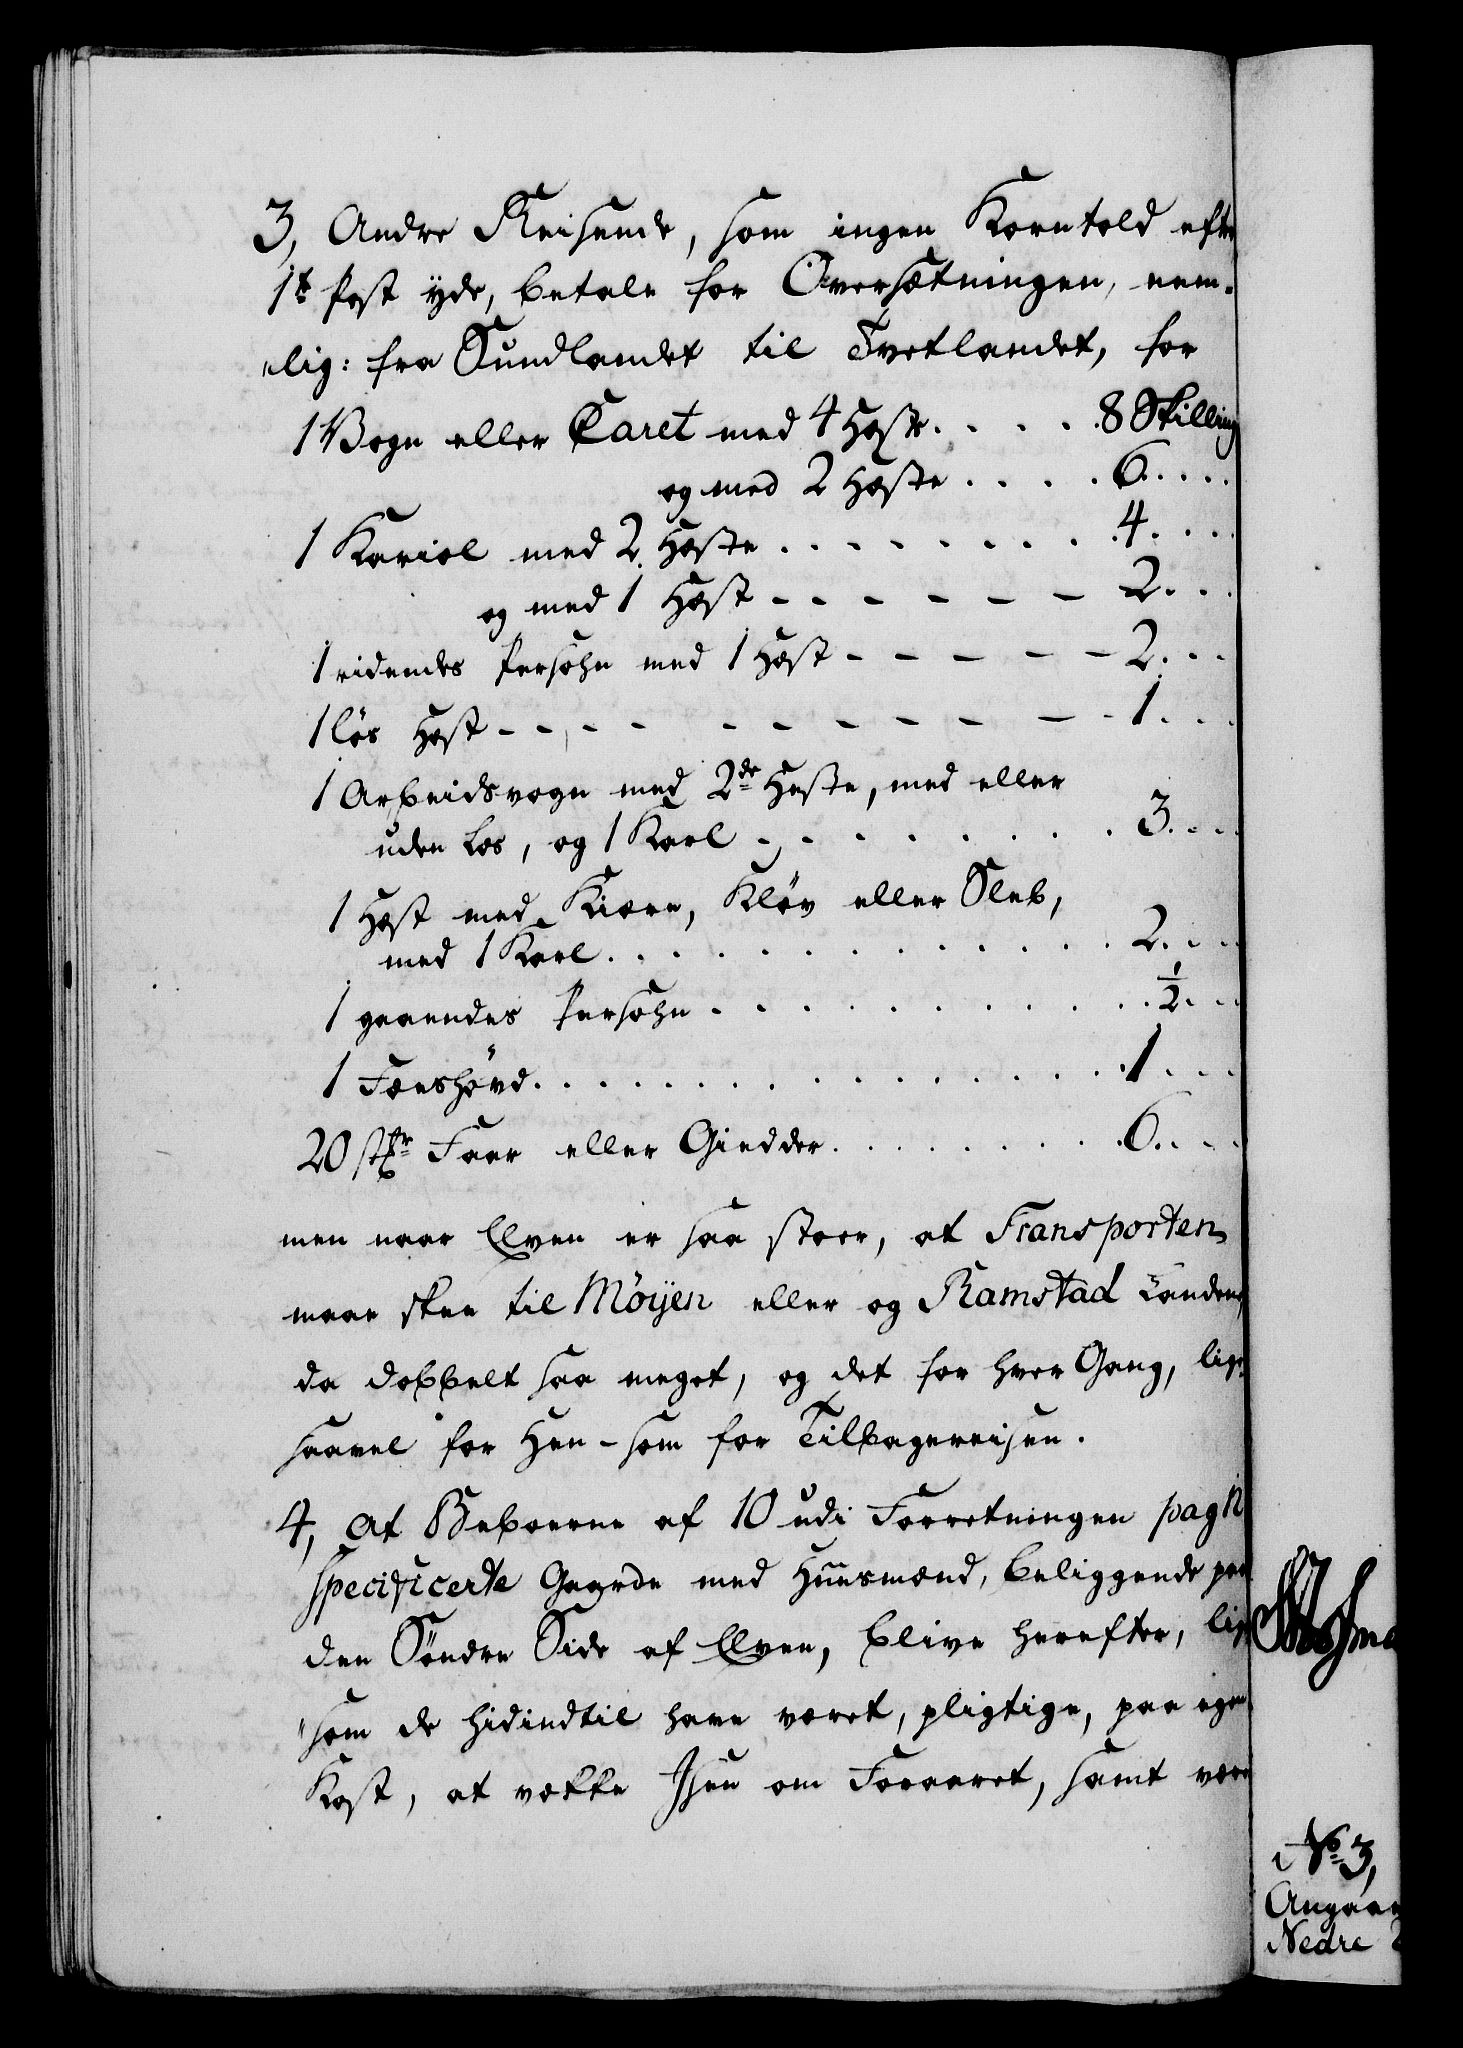 3, Andre Reisende, som ingen Korntold efter
1te Post yde, betale for Oversætningen, nem-
lig: fra Sundlandet til Tvetlandet, for
1 Vogn eller Caret med 4 Heste. . . . . 8 Skilling
og med 2 Heste . . . . . 6. . . . .
1 Kariol med 2 Heste . . . . . . . . . 4. . . .
og med 1 Hest - - - - - - - 2. . .
1 ridendes Persohn med 1 Hest - - - - - - 2. . .
1 løs Hest - - - - - - - - - - - 1. . .
1 Arbeidsvogn med 2de Heste, med eller
uden Læs, og 1 Karl . . . . . . . . . 3. . .
1 Hest med Kiærre, Kløv eller Sleb,
med 1 Karl. . . . . . . . . . . . . 2. . .
1 gaaendes Persohn . . . . . . . . . . . ½. . .
1 Fæeshøvd. . . . . . . . . . . . . . . 1. . .
20 stkr Faar eller Giedder. . . . . . . . 6. . .
men naar Elven er saa stoer, at Transporten
maae skee til Møÿen eller og Ramstad Landene,
da dobbelt saa meget, og det for hver Gang, lige-
saavel for Hen- som for Tilbagereisen.
4, At Beboerne af 10 udi Forretningen pag 11
specificerte Gaarde med Huusmænd, beliggende paa
den Søndre Side af Elven, blive herefter, lige-
som de hidindtil have været, pligtige, paa egen
Kost, at vække Isen om Foraaret, samt være
No 3,
Angaae
Nedre